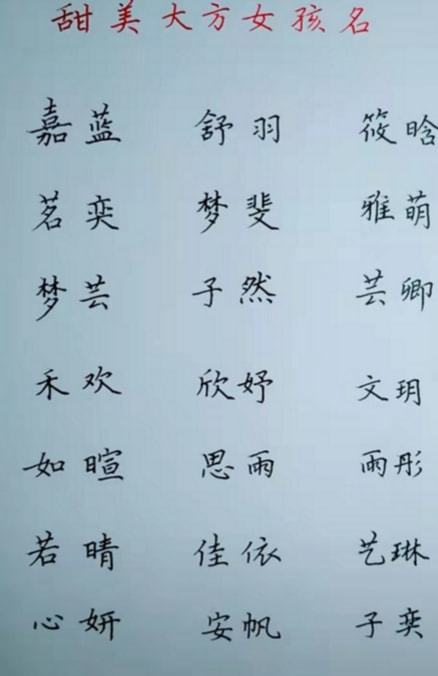 甜美大方女孩名
嘉蓝 舒羽 筱晗
茗奕 梦斐 雅萌
梦芸 子然 芸卿
禾欢 欣妤 文玥
如暄 思雨 雨彤
若晴 佳依 艺琳
心妍 安帆 子奕